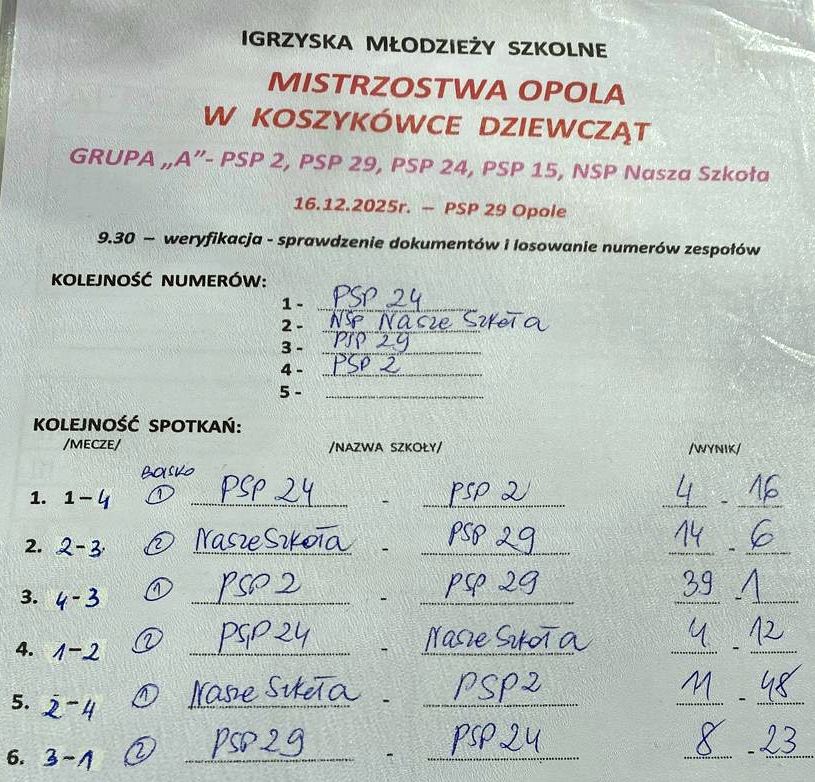 IGRZYSKA MŁODZIEŻY SZKOLNE
MISTRZOSTWA OPOLA
W KOSZYKÓWCE DZIEWCZĄT
GRUPA „A”- PSP 2, PSP 29, PSP 24, PSP 15, NSP Nasza Szkoła
16.12.2025r. – PSP 29 Opole
9.30 – weryfikacja - sprawdzenie dokumentów i losowanie numerów zespołów
KOLEJNOŚĆ NUMERÓW:
1 - PSP 24
2 - NSP Nasze Szkoła
3 - PSP 29
4 - PSP 2
5 -
KOLEJNOŚĆ SPOTKAŃ:
/MECZE/ /NAZWA SZKOŁY/ /WYNIK/
Boisko
1. 1-4 1 PSP 24 - PSP 2 4 - 16
2. 2-3 2 Nasze Szkoła - PSP 29 14 - 6
3. 4-3 1 PSP 2 - PSP 29 39 - 1
4. 1-2 2 PSP 24 - Nasze Szkoła 4 - 12
5. 2-4 1 Nasze Szkoła - PSP 2 11 - 48
6. 3-1 2 PSP 29 - PSP 24 8 - 23